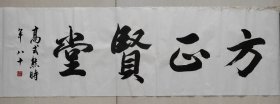 方正賢堂
高式熊時
年八十